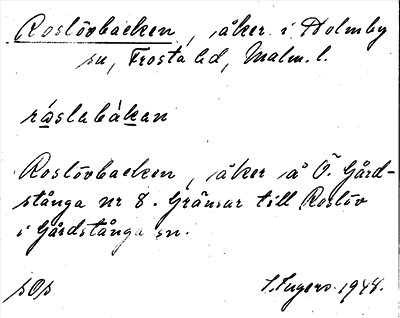 Roslövbacken, åker i Holmby
sn, Frosta hd, Malm. l.
råslabákan
Roslövbacken, åker å Ö. Gård-
stånga nr 8. Gränsar till Roslöv
i Gårdstånga sn.
sOs
S. Ingers 1948.